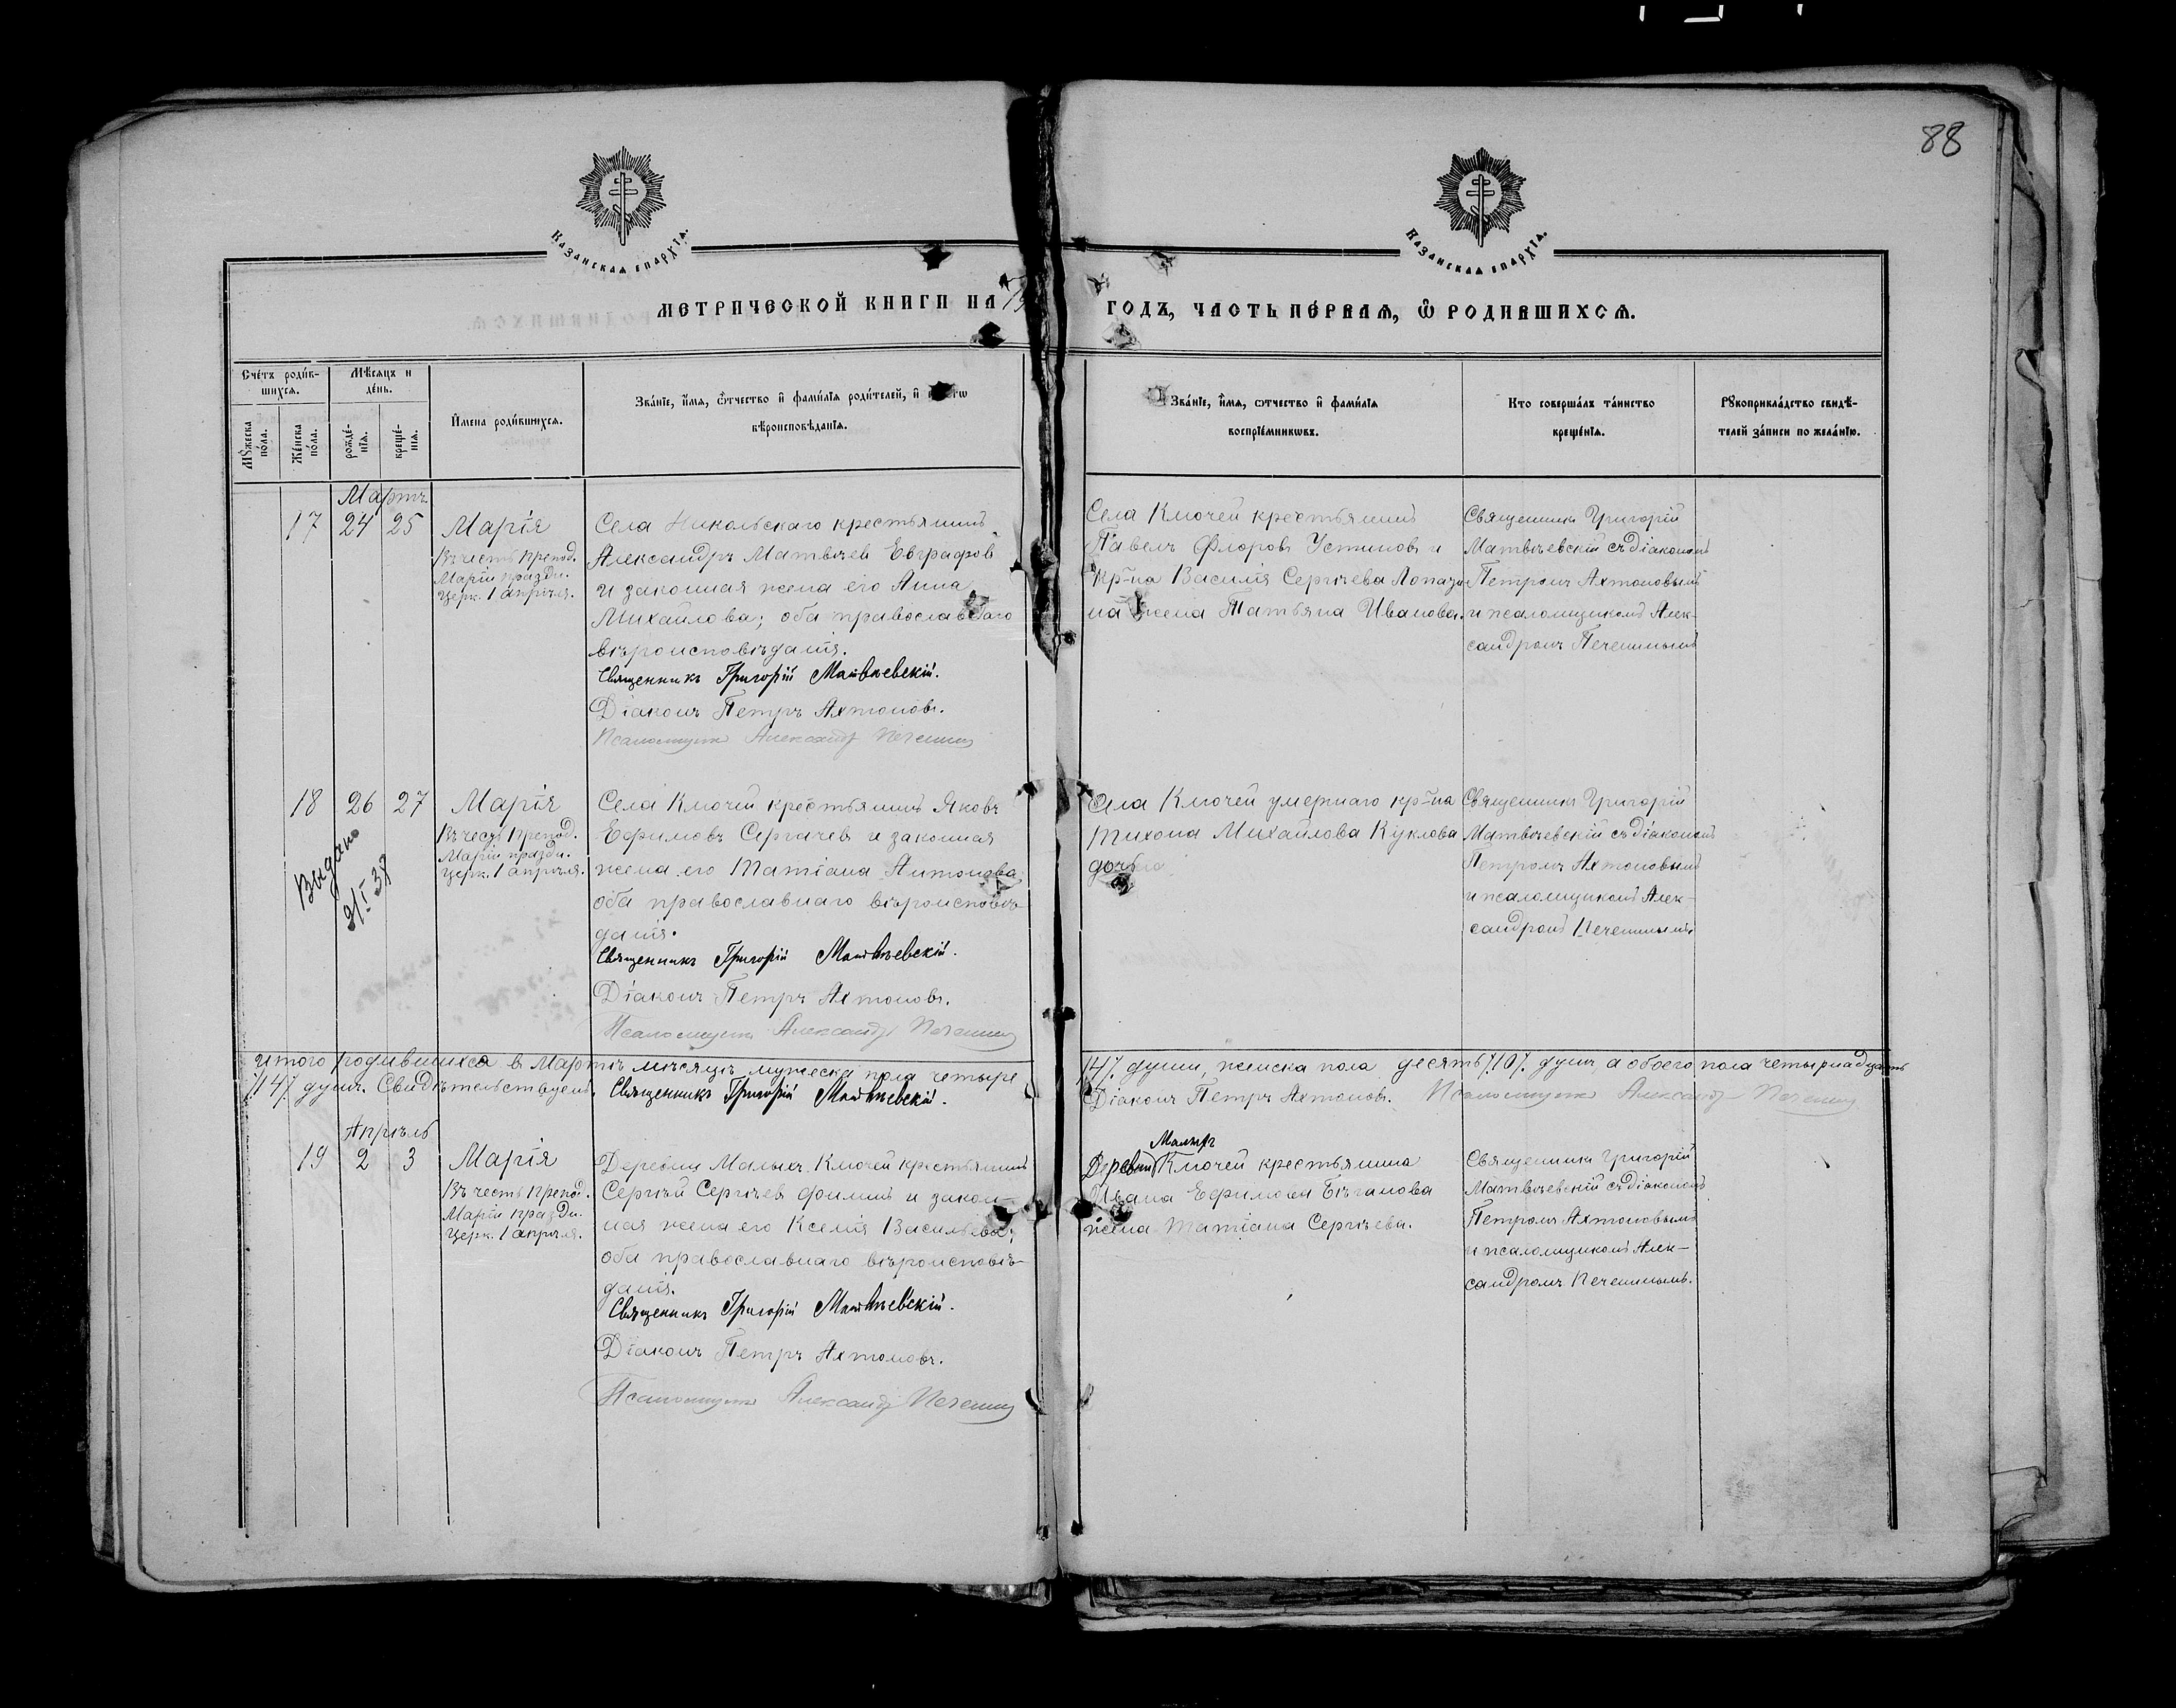 88
Казанская епархїа.
Казанская епархїа.
МЕТРИЧЕСКОЙ КНИГИ НА 19
ГОДЪ, ЧАСТЬ ПЕ́РВАЯ, Ѽ РОДИВШИХСЯ.
Сче́тъ роди́в-
шихся.
Мꙋ́жеска по́ла.
Же́нска по́ла.
Мѣ́сяцъ и
де́нь.
рожде́-
нїя.
креще́-
нїя.
И́мена роди́вшихся.
Зва́нїе, и́мя, ѻ́тчество и фами́лїя роди́телей, и
вѣроисповѣ́данїя.
Зва́нїе, и́мя, ѻ́тчество и фами́лїя
воспрїе́мниковъ.
Кто совершáлъ та́инство
креще́нїя.
Рꙋкоприкла́дство свидѣ́-
телей за́писи по жела́нїю.
Мартъ
17 24 25
Марія
Въ честь препод.
Маріи праздн.
церк. 1 апрѣля.
Села Никольскаго крестьянинъ
Александръ Матвѣевъ Евграфовъ
и законная жена его Анна
Михайлова; оба православнаго
вѣроисповѣданія.
Священникъ Григорій Матвѣевскій.
Діаконъ Петръ Ахтоновъ.
Псаломщикъ Александръ Печенинъ
Села Ключей крестьянинъ
Павелъ Флоровъ Устиновъ и
кр-на Василія Сергѣева Лопази-
на жена Татьяна Иванова.
Священникъ Григорій
Матвѣевскій съ діакономъ
Петромъ Ахтоновымъ
и псаломщикомъ Алек-
сандромъ Печенинымъ
18 26 27
Марія
Въ честь препод.
Маріи праздн.
церк. 1 апрѣля.
Выдано
21/I 38
Села Ключей крестьянинъ Яковъ
Ефимовъ Сергачевъ и законная
жена его Татіана Антонова
оба православнаго вѣроисповѣ-
данія.
Священникъ Григорій Матвѣевскій.
Діаконъ Петръ Ахтоновъ.
Псаломщикъ Александръ Печенинъ
Села Ключей умершаго кр-на
Тихона Михайлова Куклова
дочь
Священникъ Григорій
Матвѣевскій съ діакономъ
Петромъ Ахтоновымъ
и псаломщикомъ Алек-
сандромъ Печенинымъ
Итого родившихся в Мартѣ мѣсяцѣ мужеска пола четыре
/14/. души, женска пола десять /10/. душъ а обоего пола четырнадцать
/14/. душъ. Свидѣтельствуемъ. Священникъ Григорій Матвѣевскій.
Діаконъ Петръ Ахтоновъ. Псаломщикъ Александръ Печенинъ
Апрѣль
19 2 3
Марія
Въ честь препод.
Маріи праздн.
церк. 1 апрѣля.
Деревни Малыхъ Ключей крестьянинъ
Сергѣй Сергѣевъ Фоминъ и закон-
ная жена его Ксенія Васильева;
оба православнаго вѣроисповѣ-
данія.
Священникъ Григорій Матвѣевскій.
Діаконъ Петръ Ахтоновъ.
Псаломщикъ Александръ Печенинъ
Малыхъ
Деревни Ключей крестьянина
Ивана Ефимова Бѣганова
жена Татіана Сергѣева.
Священникъ Григорій
Матвѣевскій съ діакономъ
Петромъ Ахтоновымъ
и псаломщикомъ Алек-
сандромъ Печенинымъ.